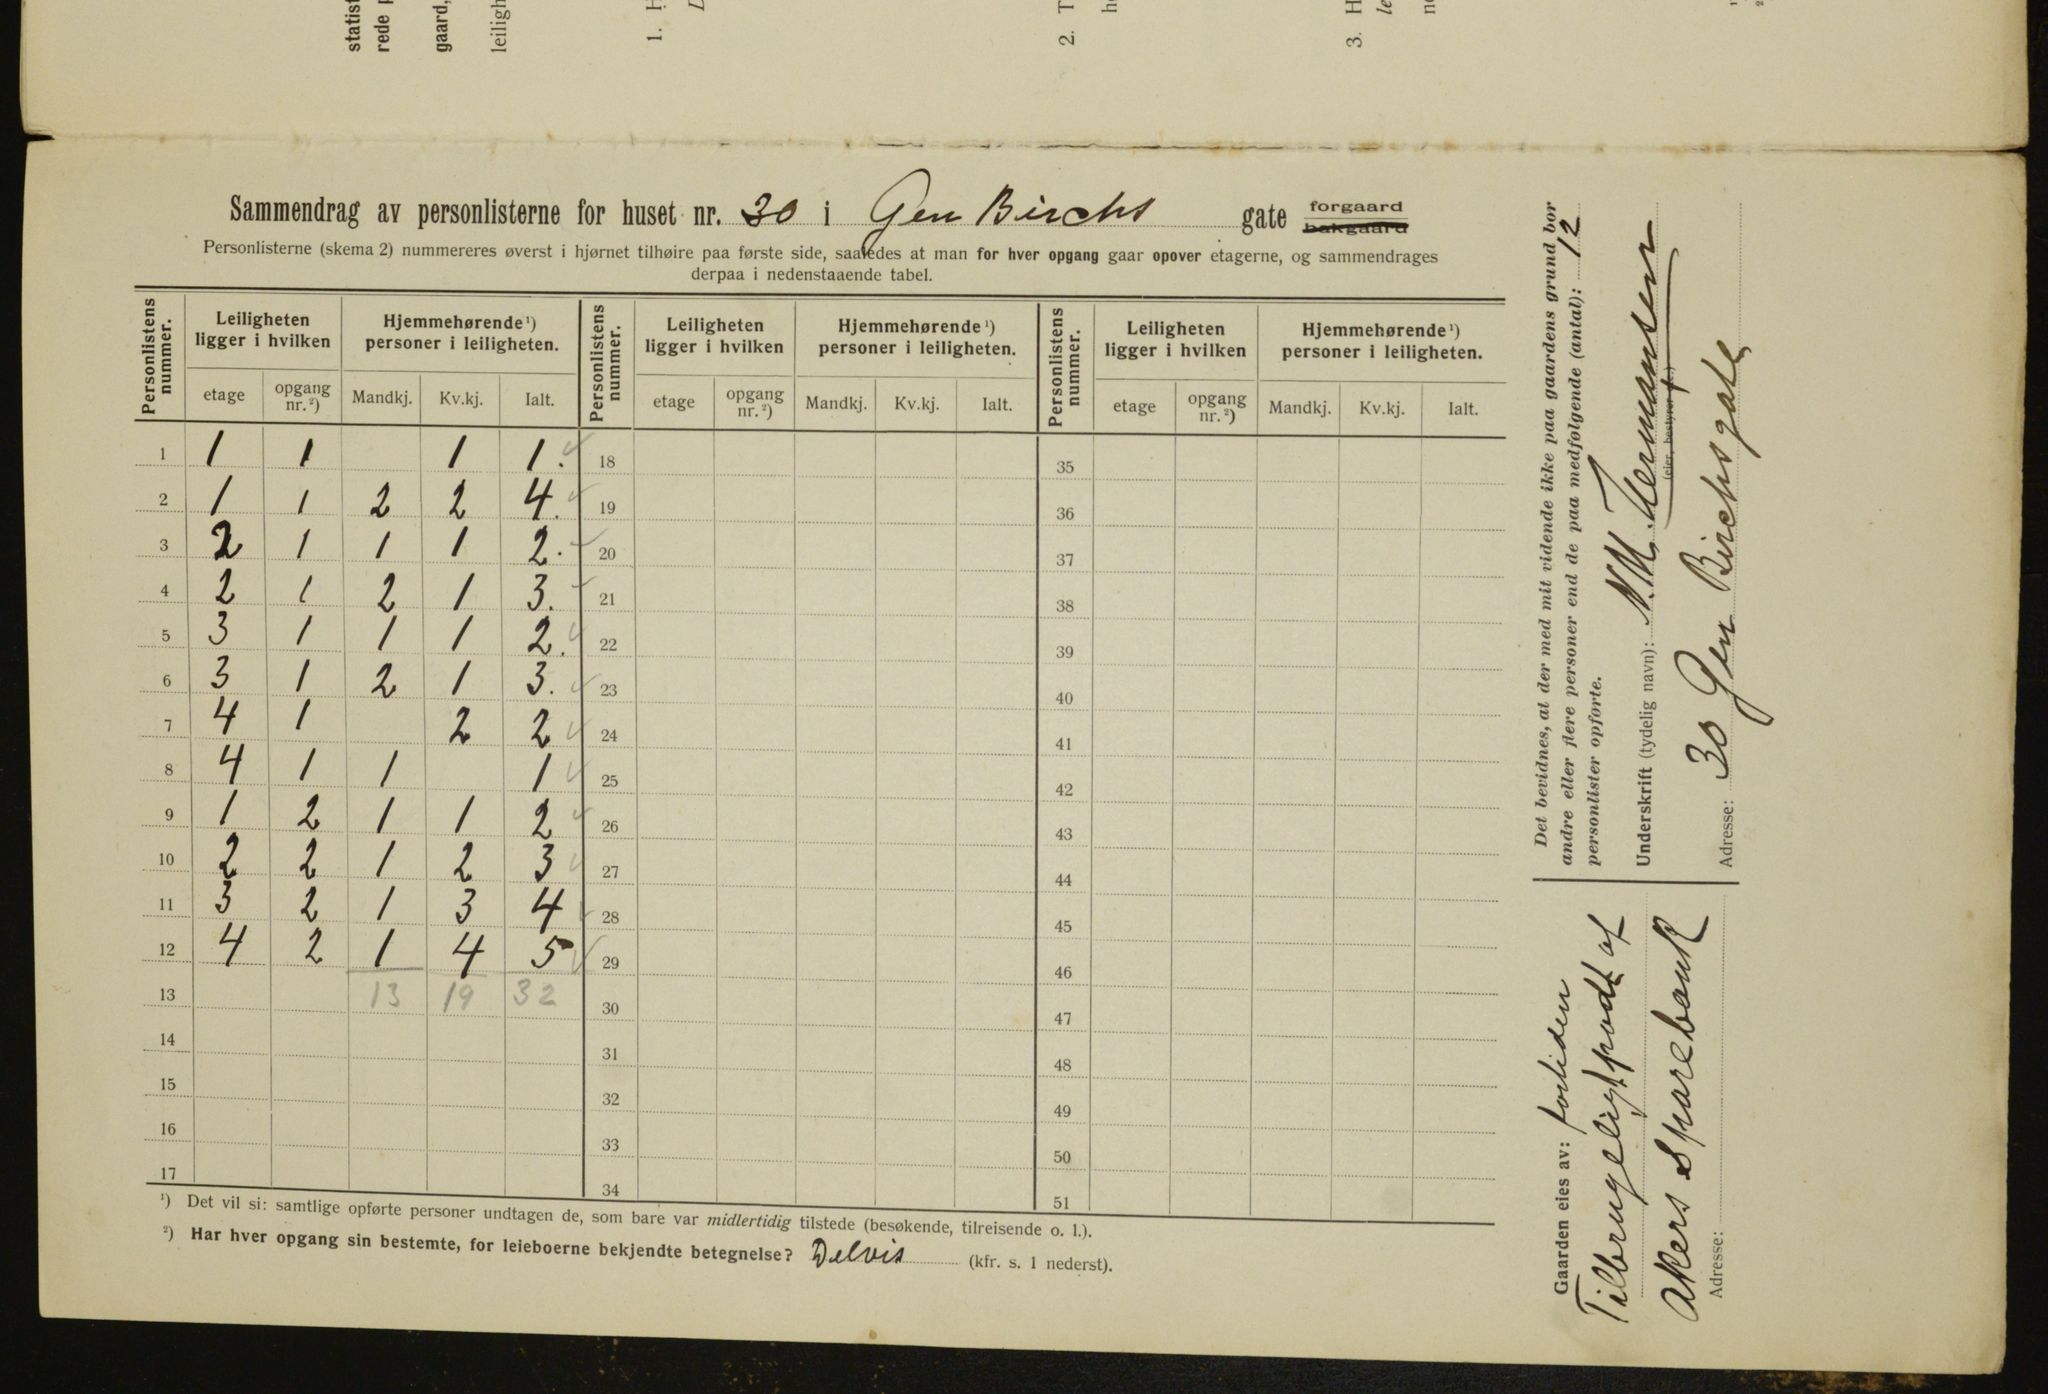 statist
rede p
gaard,
leiligh
1. H
2. T
3. H
Sammendrag av personlisterne for huset nr. 30 i Gen Birchs gate forgaard
bakgaard
Personlisterne (skema 2) nummereres øverst i hjørnet tilhøire paa første side, saaledes at man for hver opgang gaar opover etagerne, og sammendrages
derpaa i nedenstaaende tabel.
Personlistens nummer. Leiligheten ligger i hvilken Hjemmehørende ¹) personer i leiligheten. Personlistens nummer. Leiligheten ligger i hvilken Hjemmehørende ¹) personer i leiligheten. Personlistens nummer. Leiligheten ligger i hvilken Hjemmehørende ¹) personer i leiligheten.
etage opgang nr. ²) Mandkj. Kv.kj. Ialt. etage opgang nr. ²) Mandkj. Kv.kj. Ialt. etage opgang nr. ²) Mandkj. Kv.kj. Ialt.
1 1 1 1 1. 18 35
2 1 1 2 2 4. 19 36
3 2 1 1 1 2. 20 37
4 2 1 2 1 3. 21 38
5 3 1 1 1 2. 22 39
6 3 1 2 1 3. 23 40
7 4 1 2 2 24 41
8 4 1 1 1 25 42
9 1 2 1 1 2 26 43
10 2 2 1 2 3 27 44
11 3 2 1 3 4 28 45
12 4 2 1 4 5 29 46
13 13 19 32 30 47
14 31 48
15 32 49
16 33 50
17 34 51
¹) Det vil si: samtlige opførte personer undtagen de, som bare var midlertidig tilstede (besøkende, tilreisende o. l.).
²) Har hver opgang sin bestemte, for leieboerne bekjendte betegnelse? Delvis (kfr. s. 1 nederst).
Det bevidnes, at der med mit vidende ikke paa gaardens grund bor
andre eller flere personer end de paa medfølgende (antal): 12
personlister opførte.
Underskrift (tydelig navn): N. M. Hermansen
(eier, bestyrer
Adresse: 30 Gen Birchsgate
Gaarden eies av: fortiden
Tilbrugeligtpodt af
Akers Sparebank
Adresse: